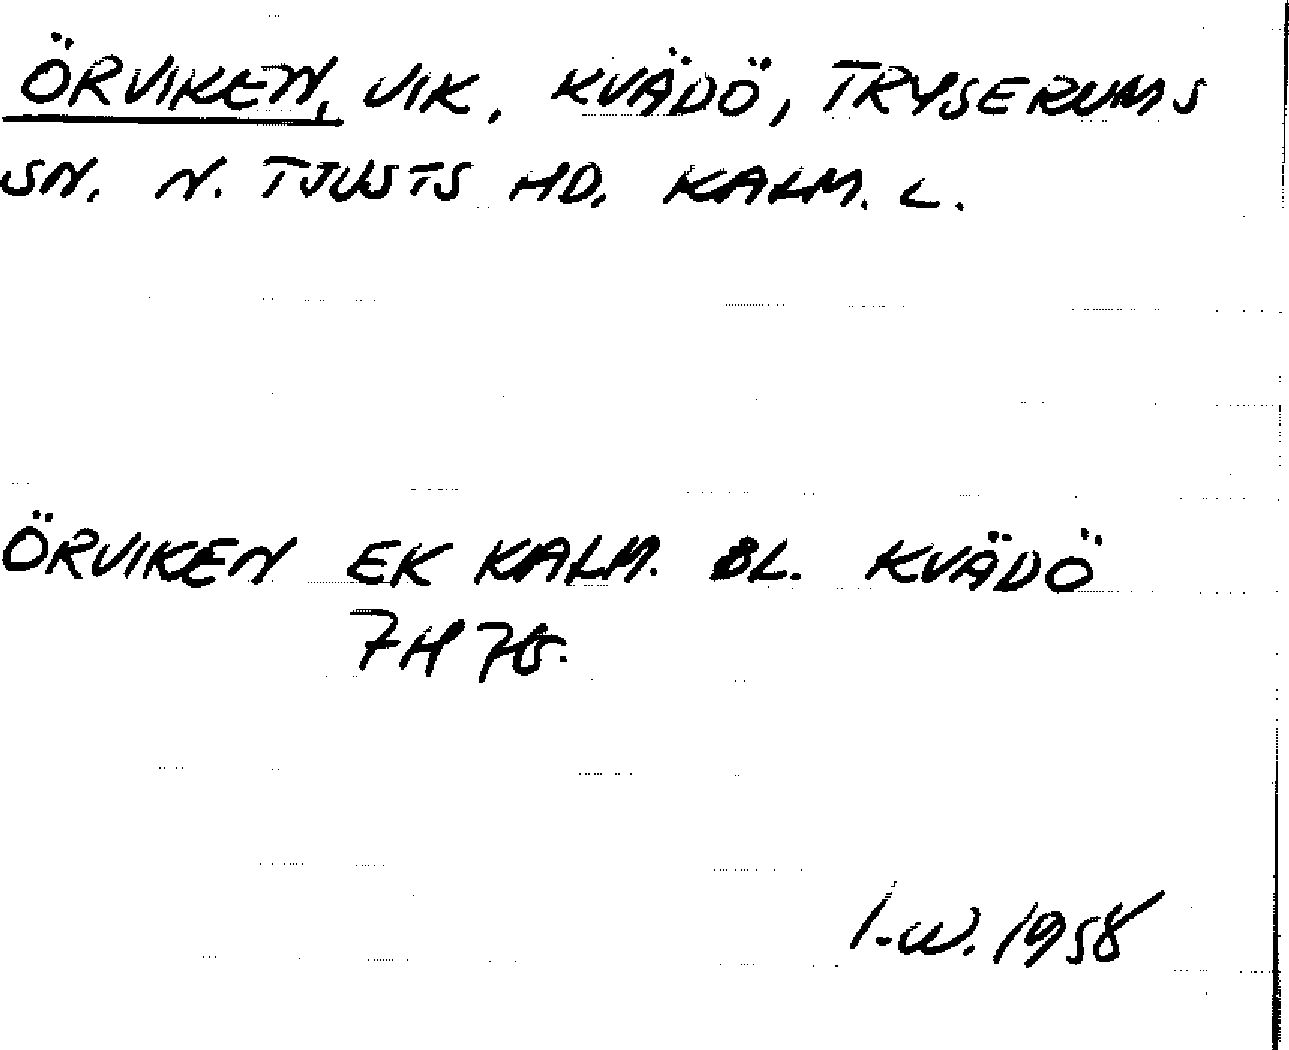 ÖRVIKEN, VIK, KVÄDÖ, TRYSERUMS
SN. N. TJUSTS HD. KALM. L.
ÖRVIKEN EK KALM. BL. KVÄDÖ
7H
I.W. 1958